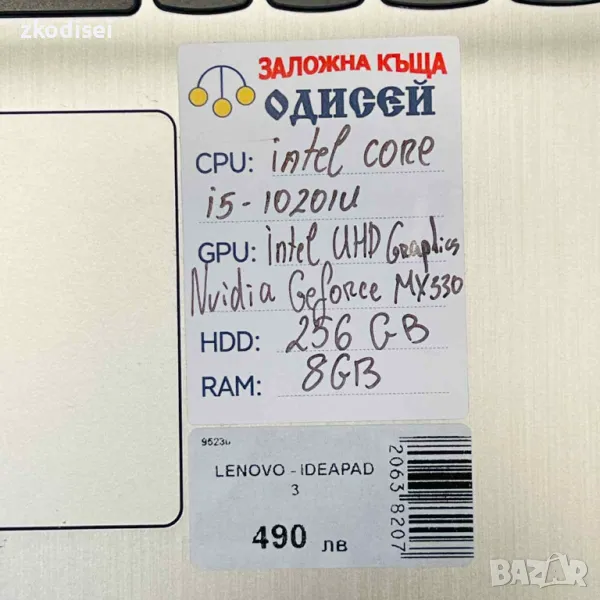 zkodisei
ЗАЛОЖНА КЪЩА
ОДИСЕЙ
CPU: intel core
i5-10201U
GPU: intel UHD Graphics
Nvidia Geforce MX330
HDD: 256 GB
RAM: 8GB
LENOVO - IDEAPAD
3
490 лв
2063 8207
BAZAR